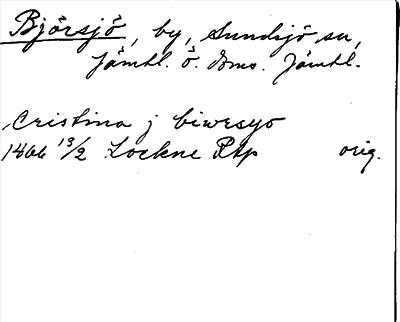 Björsjö, by, Sundsjö sn,
Jämtl. ö. doms. Jämtl.
Cristina j biwrsyo
1466 13/2 Lockne Rap orig.